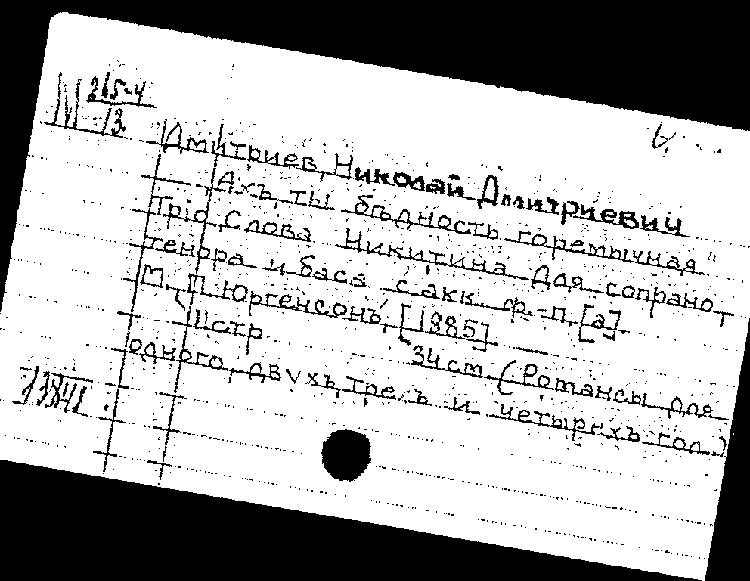 N 265-4
13
Дмитриев, Николай Дмитриевич
Ахъ, ты бѣдность горемычная"
Тріо. Слова Никитина для сопрано,
тенора и баса с акк. ф.-п.[а].
М., П. Юргенсонъ, [1885].
11 стр. 34 см. (Романсы для
одного, двухъ, трехъ и четырехъ гол.)
13841.